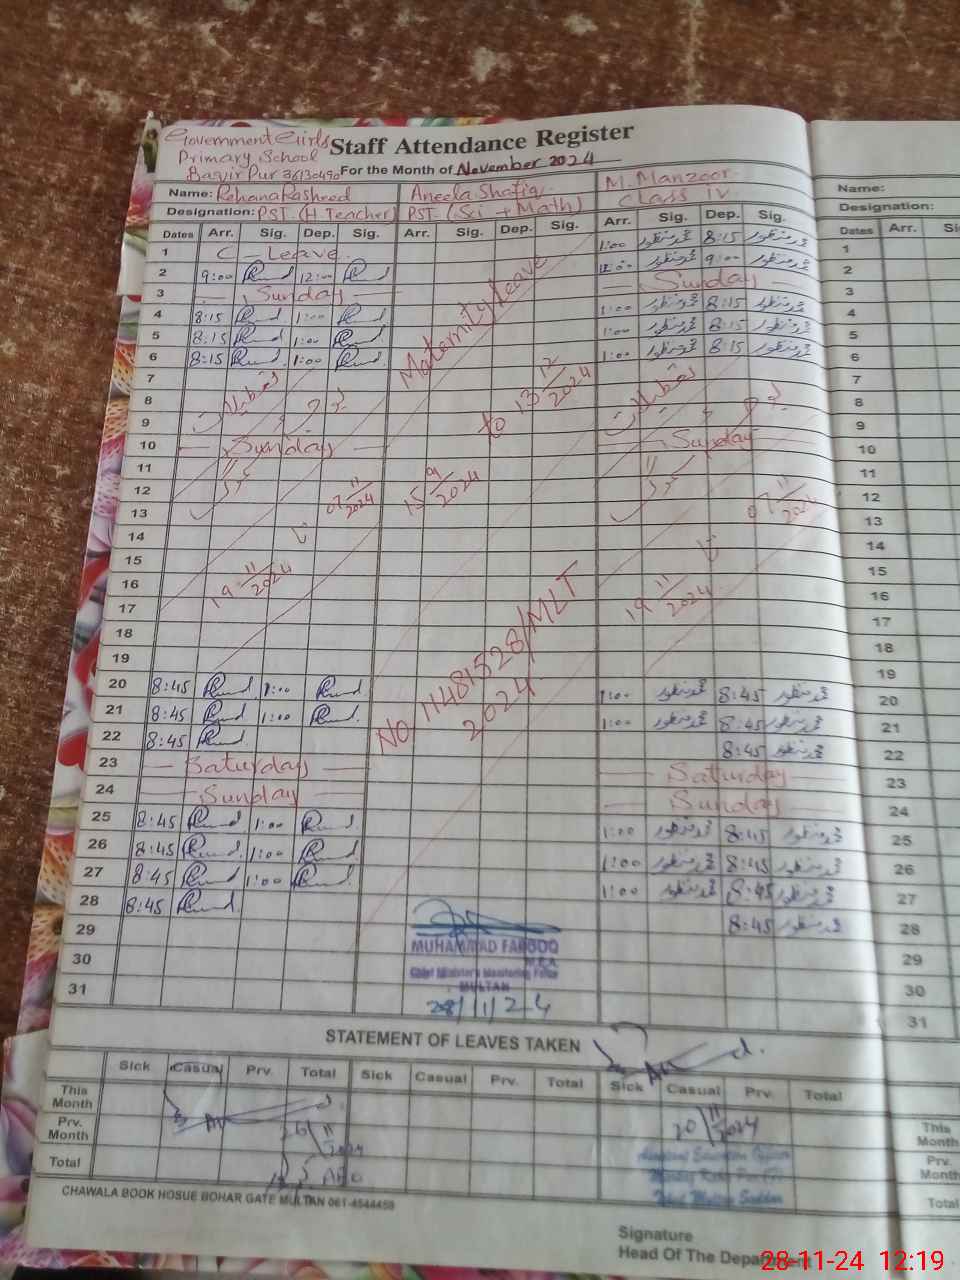 Government Girls
Primary School
Staff Attendance Register
For the Month of November 2024
Name: Rehana Rasheed Aneela Shafiq M. Manzoor
Designation: PST (H Teacher) PST (Sci + Math) Class IV
Name:
Designation:
Dates Arr. Sig. Dep. Sig. Arr. Sig. Dep. Sig. Arr. Sig. Dep. Sig. Dates Arr.
1 C - Leave 1:00 محمد منظور 8:15 محمد منظور 1
2 9:00 12:00 12:00 محمد منظور 9:00 محمد منظور 2
3 Sunday Sunday 3
4 8:15 1:00 1:00 محمد منظور 8:15 محمد منظور 4
5 8:15 1:00 1:00 محمد منظور 8:15 محمد منظور 5
6 8:15 1:00 1:00 محمد منظور 8:15 محمد منظور 6
Maternity Leave
15 9/2024 to 13 12/2024
No 11481528/MLT
2024
7 7
8 تعطیلات تعطیلات 8
9 9
10 Sunday Sunday 10
11 11
12 12
13 07 11/2024 07 11/2024 13
14 تا تا 14
15 15
16 19 11/2024 19 11/2024 16
17 17
18 18
19 19
20 8:45 1:00 1:00 محمد منظور 8:45 محمد منظور 20
21 8:45 1:00 1:00 محمد منظور 8:45 محمد منظور 21
22 8:45 8:45 محمد منظور 22
23 Saturday Saturday 23
24 Sunday Sunday 24
25 8:45 1:00 1:00 محمد منظور 8:45 محمد منظور 25
26 8:45 1:00 1:00 محمد منظور 8:45 محمد منظور 26
27 8:45 1:00 1:00 محمد منظور 8:45 محمد منظور 27
28 8:45 8:45 محمد منظور 28
29 29
30 30
31 31
MUHAMMAD FAROOQ
M.E.A
Chief Minister's Monitoring Force
MULTAN
28/11/24
STATEMENT OF LEAVES TAKEN
Sick Casual Prv. Total Sick Casual Prv. Total Sick Casual Prv. Total
This Month This Month
Prv. Month Prv. Month
Total Total
26/11/2024
20/11/2024
Assistant Education Officer
CHAWALA BOOK HOSUE BOHAR GATE MULTAN 061-4544458
Signature
Head Of The Department
28-11-24 12:19